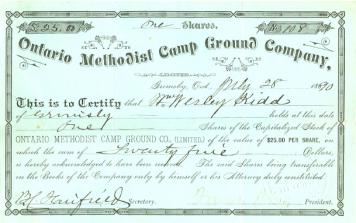 $25.00 One Shares. No 108
Ontario Methodist Camp Ground Company,
LIMITED
Grimsby, Ont July 28 1890
This is to Certify that Wm Wesley Kidd
of Grimsby holds at this date
One Shares of the Capitalized Stock of
ONTARIO METHODIST CAMP GROUND CO. (LIMITED) of the value of $25.00 PER SHARE, on
which the sum of Twenty five Dollars,
is hereby acknowledged to have been The said Shares being transferable
in the Books of the Company only by himself or his Attorney duly constituted.
Secretary.